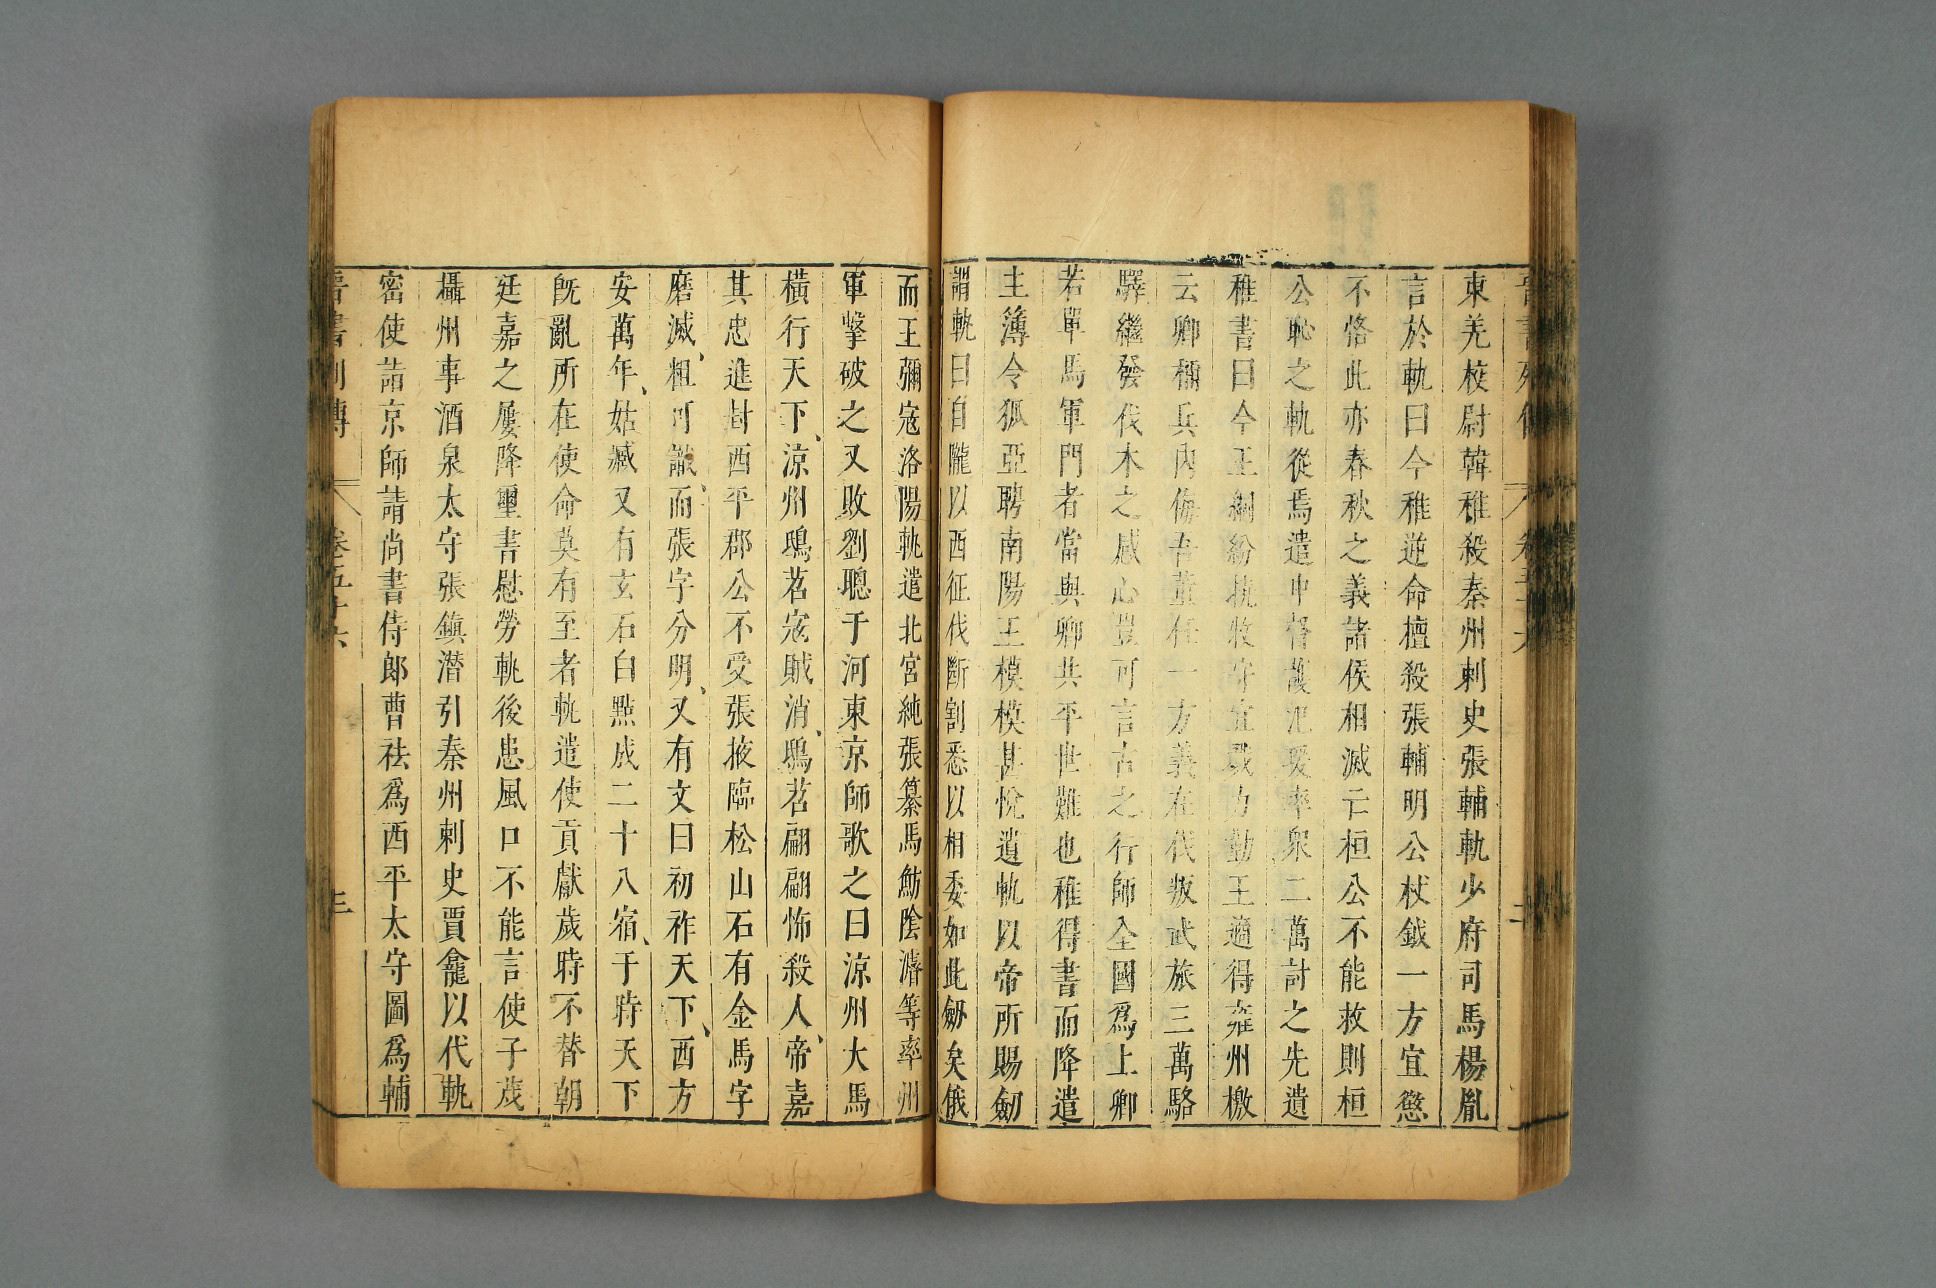 東羌校尉韓稚殺秦州刺史張輔軌少府司馬楊胤
言於軌曰今稚逆命擅殺張輔明公杖鉞一方宜懲
不恪此亦春秋之義諸侯相滅亡桓公不能救則桓
公恥之軌從焉遣中督護氾瑗率眾二萬討之先遺
稚書曰今王綱紛撓牧守宜戮力勤王適得雍州檄
云卿稱兵內侮吾董任一方義在伐叛武旅三萬駱
驛繼發伐木之感心豈可言古之行師全國爲上卿
若單馬軍門者當與卿共平世難也稚得書而降遣
主簿令狐亞聘南陽王模模甚悅遺軌以帝所賜劒
謂軌曰自隴以西征伐斷割悉以相委如此劒矣俄
而王彌寇洛陽軌遣北宮純張纂馬魴陰濬等率州
軍擊破之又敗劉聰于河東京師歌之曰涼州大馬
橫行天下涼州鴟苕寇賊消鴟苕翩翩怖殺人帝嘉
其忠進封西平郡公不受張掖臨松山石有金馬字
磨滅粗可識而張字分明又有文曰初祚天下西方
安萬年姑臧又有玄石白點成二十八宿于時天下
既亂所在使命莫有至者軌遣使貢獻歲時不替朝
廷嘉之屢降璽書慰勞軌後患風口不能言使子茂
攝州事酒泉太守張鎮潛引秦州刺史賈龕以代軌
密使詣京師請尚書侍郎曹祛爲西平太守圖爲輔
晉書列傳 卷五十六 三